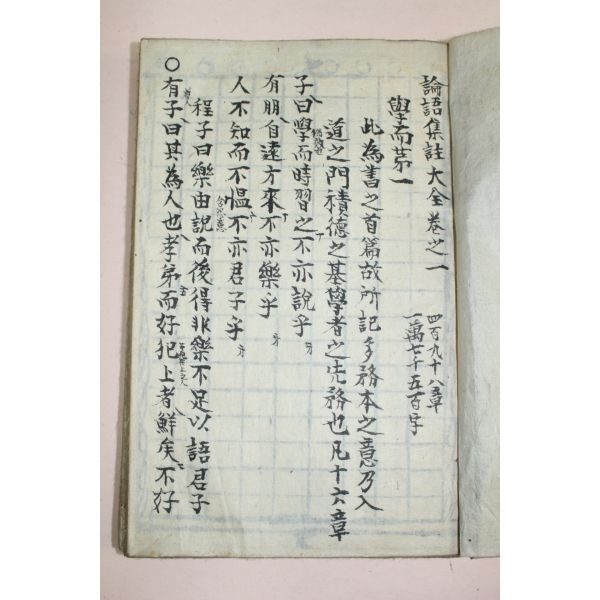 論語集註大全卷之一
四百九十八章
一萬七千五百字
學而第一
此為書之首篇故所記多務本之意乃入
道之門積德之基學者之先務也凡十六章
子曰學而時習之不亦說乎
有朋自遠方來不亦樂乎
人不知而不慍不亦君子乎
程子曰樂由說而後得非樂不足以語君子
○有子曰其為人也孝弟而好犯上者鮮矣不好